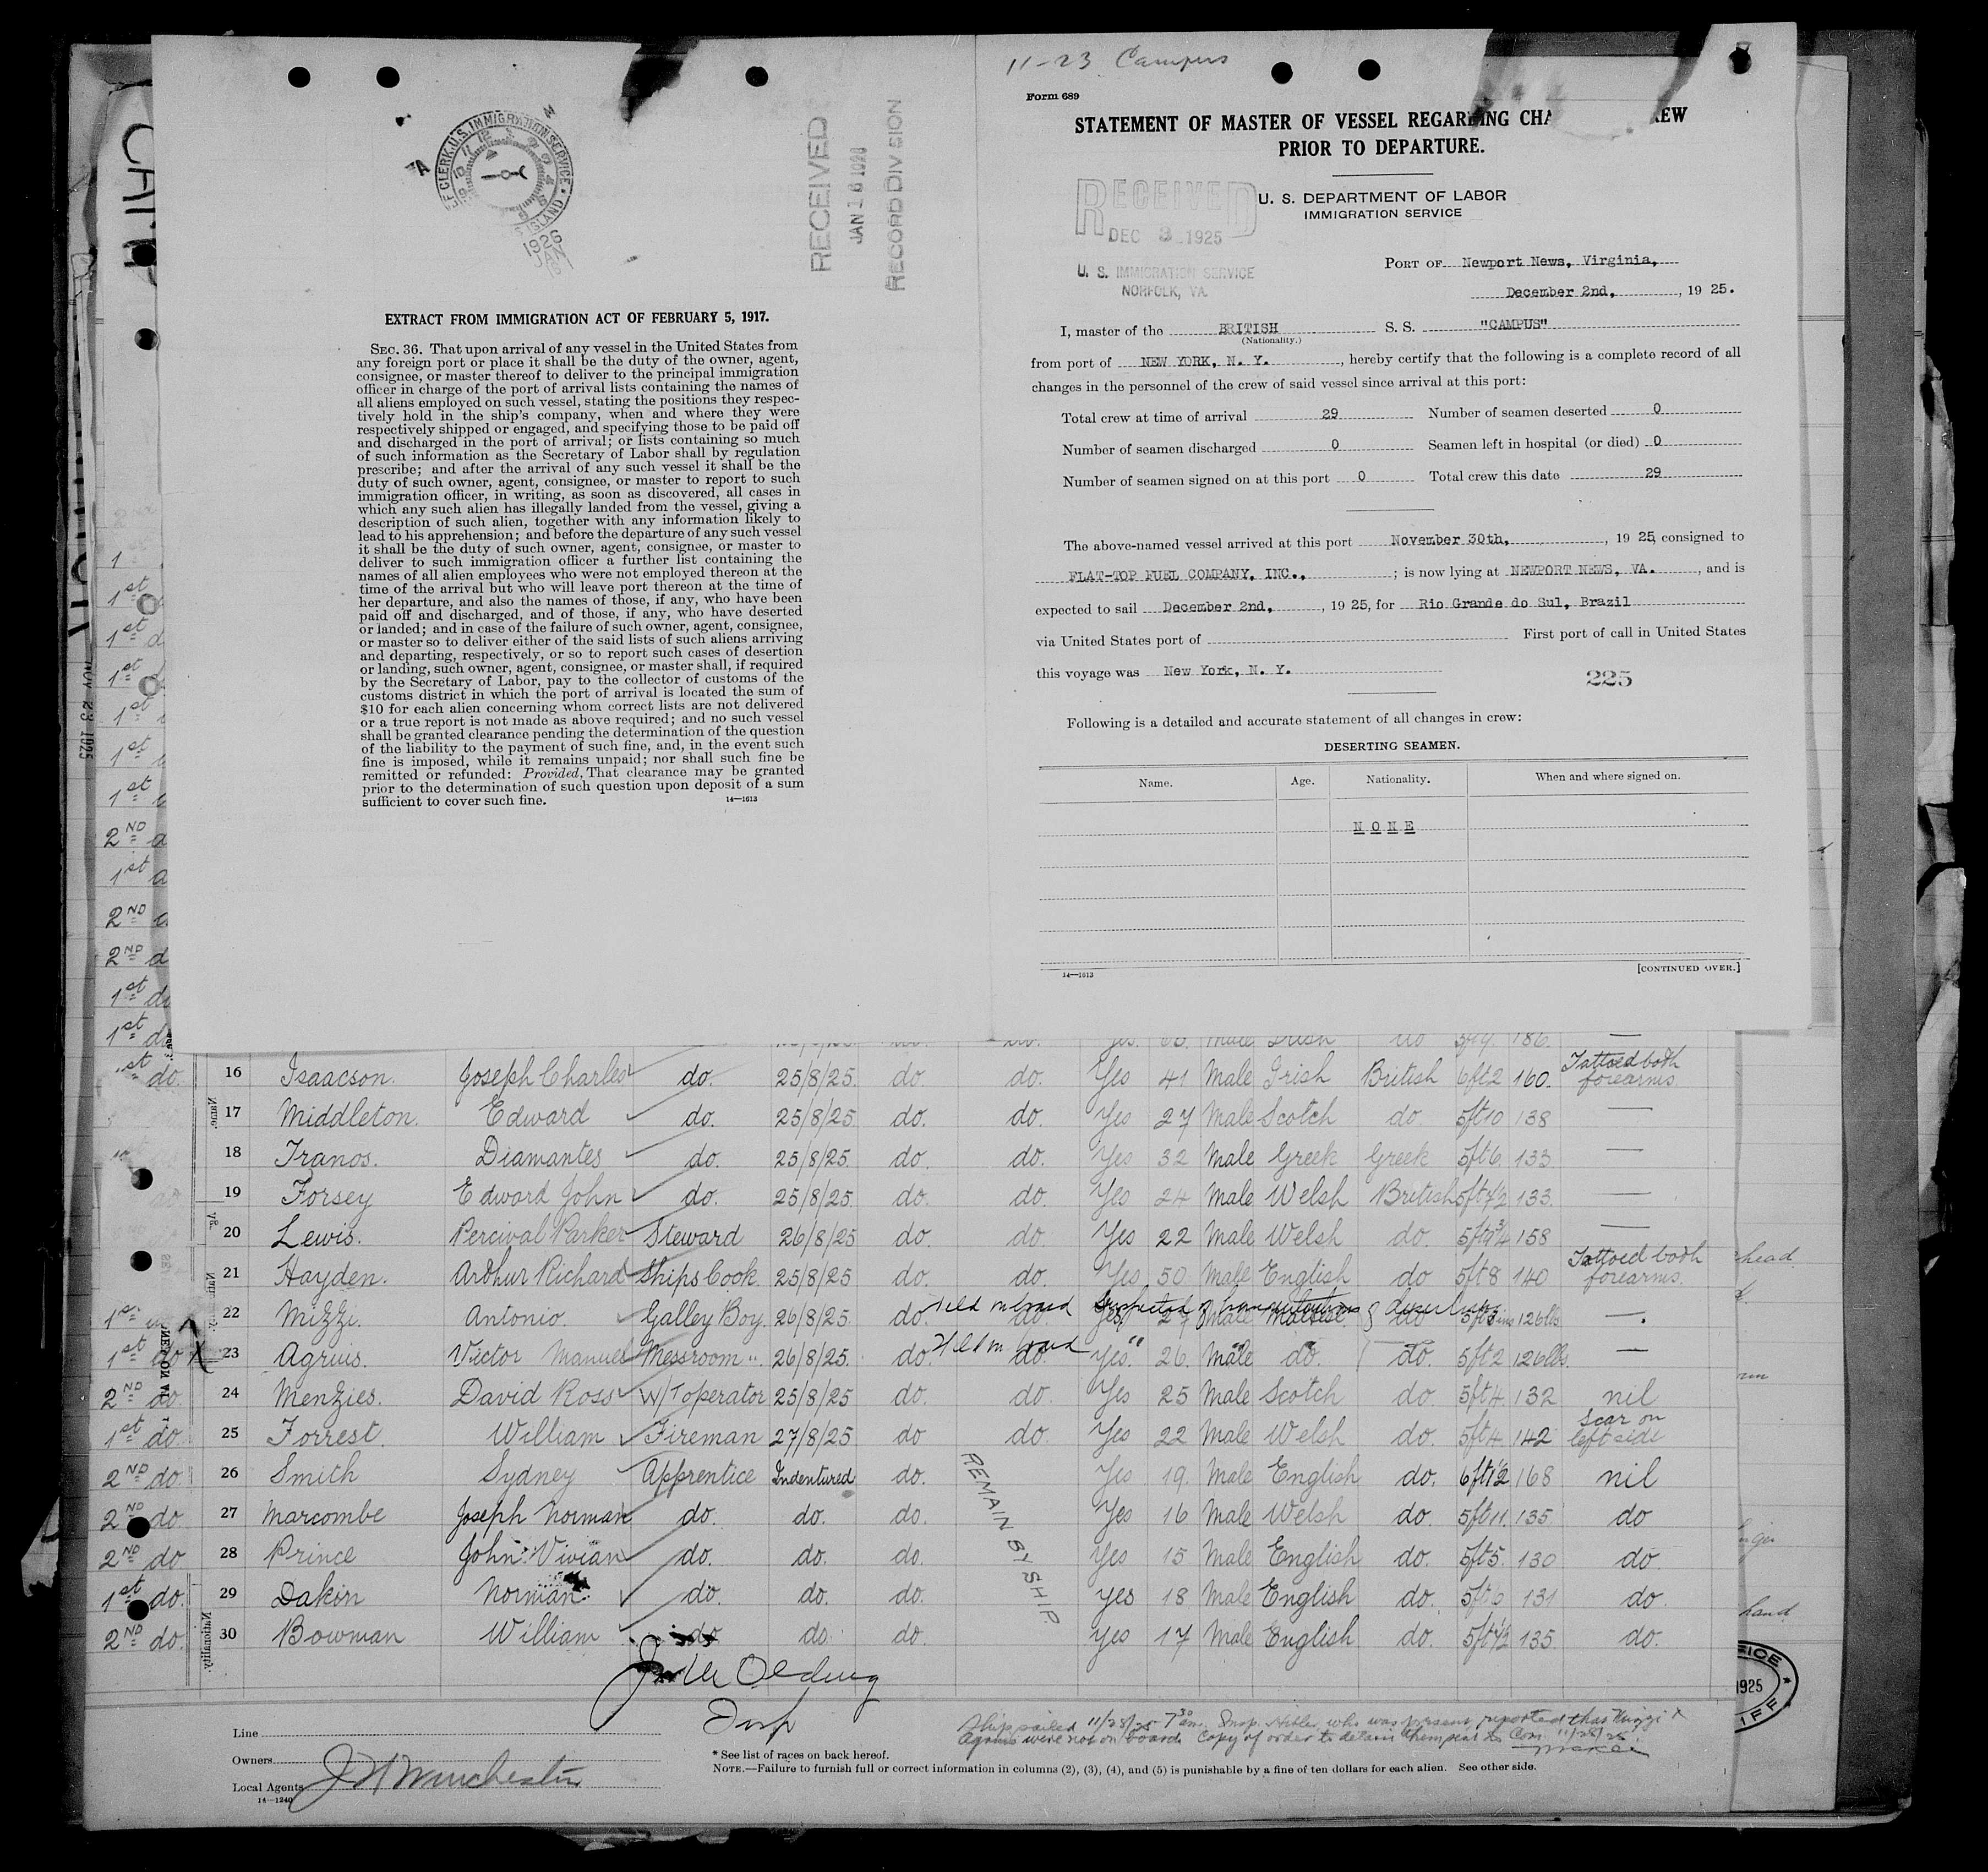 11-23 Campus
Form 689
STATEMENT OF MASTER OF VESSEL REGARDING CHA EW
PRIOR TO DEPARTURE.
U. S. DEPARTMENT OF LABOR
IMMIGRATION SERVICE
RECEIVED
DEC 3 1925
U. S. IMMIGRATION SERVICE
NORFOLK, VA.
PORT OF Newport News, Virginia,
December 2nd, , 19 25.
I, master of the BRITISH S. S. "CAMPUS"
(Nationality.)
from port of NEW YORK, N. Y. , hereby certify that the following is a complete record of all
changes in the personnel of the crew of said vessel since arrival at this port:
Total crew at time of arrival 29 Number of seamen deserted 0
Number of seamen discharged 0 Seamen left in hospital (or died) 0
Number of seamen signed on at this port 0 Total crew this date 29
The above-named vessel arrived at this port November 30th, , 19 25, consigned to
FLAT-TOP FUEL COMPANY, INC., ; is now lying at NEWPORT NEWS, VA. , and is
expected to sail December 2nd, , 19 25, for Rio Grande do Sul, Brazil
via United States port of First port of call in United States
this voyage was New York, N. Y.
225
Following is a detailed and accurate statement of all changes in crew:
DESERTING SEAMEN.
Name. Age. Nationality. When and where signed on.
NONE
14—1613 [CONTINUED OVER.]
CLERK, U.S. IMMIGRATION SERVICE
ISLAND
1926
JAN
RECEIVED
JAN 16 1926
RECORD DIVISION
EXTRACT FROM IMMIGRATION ACT OF FEBRUARY 5, 1917.
SEC. 36. That upon arrival of any vessel in the United States from
any foreign port or place it shall be the duty of the owner, agent,
consignee, or master thereof to deliver to the principal immigration
officer in charge of the port of arrival lists containing the names of
all aliens employed on such vessel, stating the positions they respec-
tively hold in the ship's company, when and where they were
respectively shipped or engaged, and specifying those to be paid off
and discharged in the port of arrival; or lists containing so much
of such information as the Secretary of Labor shall by regulation
prescribe; and after the arrival of any such vessel it shall be the
duty of such owner, agent, consignee, or master to report to such
immigration officer, in writing, as soon as discovered, all cases in
which any such alien has illegally landed from the vessel, giving a
description of such alien, together with any information likely to
lead to his apprehension; and before the departure of any such vessel
it shall be the duty of such owner, agent, consignee, or master to
deliver to such immigration officer a further list containing the
names of all alien employees who were not employed thereon at the
time of the arrival but who will leave port thereon at the time of
her departure, and also the names of those, if any, who have been
paid off and discharged, and of those, if any, who have deserted
or landed; and in case of the failure of such owner, agent, consignee,
or master so to deliver either of the said lists of such aliens arriving
and departing, respectively, or so to report such cases of desertion
or landing, such owner, agent, consignee, or master shall, if required
by the Secretary of Labor, pay to the collector of customs of the
customs district in which the port of arrival is located the sum of
$10 for each alien concerning whom correct lists are not delivered
or a true report is not made as above required; and no such vessel
shall be granted clearance pending the determination of the question
of the liability to the payment of such fine, and, in the event such
fine is imposed, while it remains unpaid; nor shall such fine be
remitted or refunded: Provided, That clearance may be granted
prior to the determination of such question upon deposit of a sum
sufficient to cover such fine. 14—1613
1st do. 16 Isaacson. Joseph Charles do. 25/8/25. do. do. Yes 41 Male Irish British 6ft2 160. Tattoed both forearms
17 Middleton. Edward do. 25/8/25 do. do. Yes 27 Male Scotch do. 5ft10 138 —
18 Tranos. Diamantes do. 25/8/25. do. do. Yes 32 Male Greek Greek 5ft6 133 —
19 Forsey Edward John do. 25/8/25. do. do. Yes 24 Male Welsh British 133. —
20 Lewis. Percival Parker Steward 26/8/25 do. do. Yes 22 Male Welsh do. 5ft9¾ 158 —
21 Hayden. Arthur Richard Ships Cook. 25/8/25 do. do. Yes 50 Male English do 5ft8 140 Tattoed both forearms.
22 Mizzi. Antonio. Galley Boy. 26/8/25 do. Held on board Yes 27 Male Maltese do 5ft3ins 126lbs —.
1st do X 23 Agruis. Victor Manuel Messroom ". 26/8/25. do. Held on board do. Yes. 26. Male do. do. 5ft2 126lbs. —
2ND do. 24 Menzies. David Ross W/T operator 25/8/25 do. do. Yes 25 Male Scotch do 5ft4 132 nil
1st do. 25 Forrest. William Fireman 27/8/25 do do. Yes 22 Male Welsh do. 5ft4 142 Scar on left side
2ND do. 26 Smith Sydney Apprentice Indentured do. Yes 19. Male English do. 6ft1½ 168 nil
2ND do. 27 Marcombe Joseph Norman do. do. do. Yes 16 Male Welsh do. 5ft11. 135 do
2ND do 28 Prince John Vivian do. do. do. Yes 15 Male English do. 5ft5. 130 do
1st do. 29 Dakin Norman. do. do. do. Yes 18 Male English do. 5ft6 131 do.
2ND do. 30 Bowman William do do. do. Yes 17 Male English do. 135. do.
REMAIN BY SHIP.
Insp
Ship sailed 11/28/25 7 30 am. Insp. who was present reported that Mizzi &
Agruis were not on board. Copy of order to detain them sent to Com 11/28/25.
Line
Owners
Local Agents J W Winchester
14—1240
* See list of races on back hereof.
NOTE.—Failure to furnish full or correct information in columns (2), (3), (4), and (5) is punishable by a fine of ten dollars for each alien. See other side.
head
hand
1925